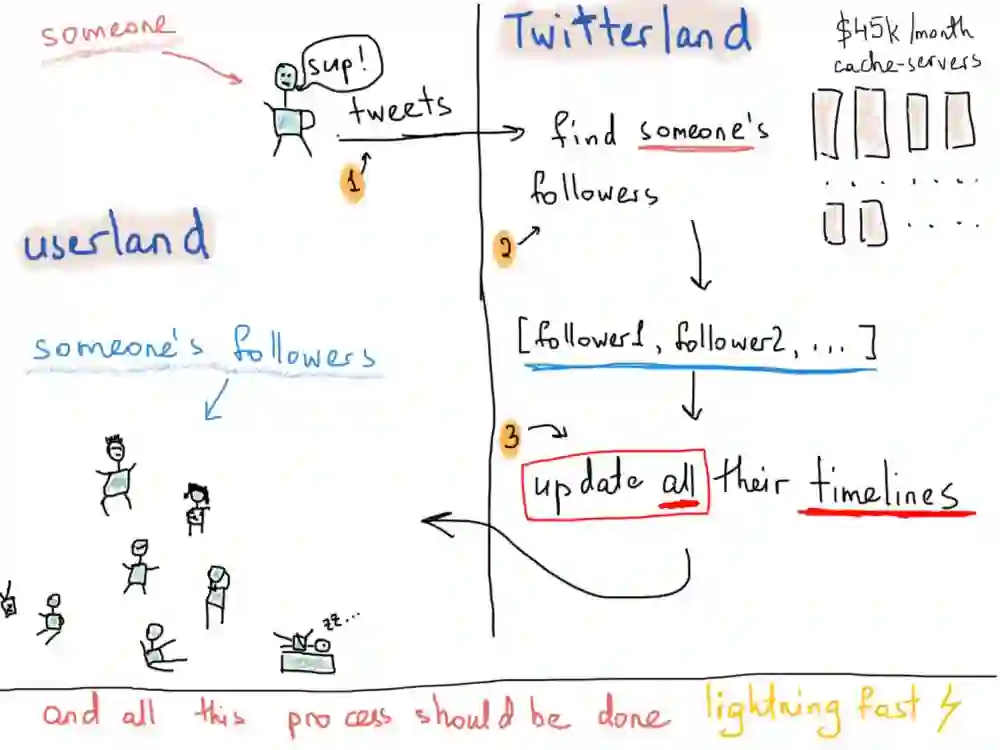 someone
sup!
tweets
1
userland
someone's followers
zz...
Twitterland
$45k/month
cache-servers
find someone's
followers
2
[follower1, follower2, ...]
3
update all their timelines
and all this process should be done lightning fast